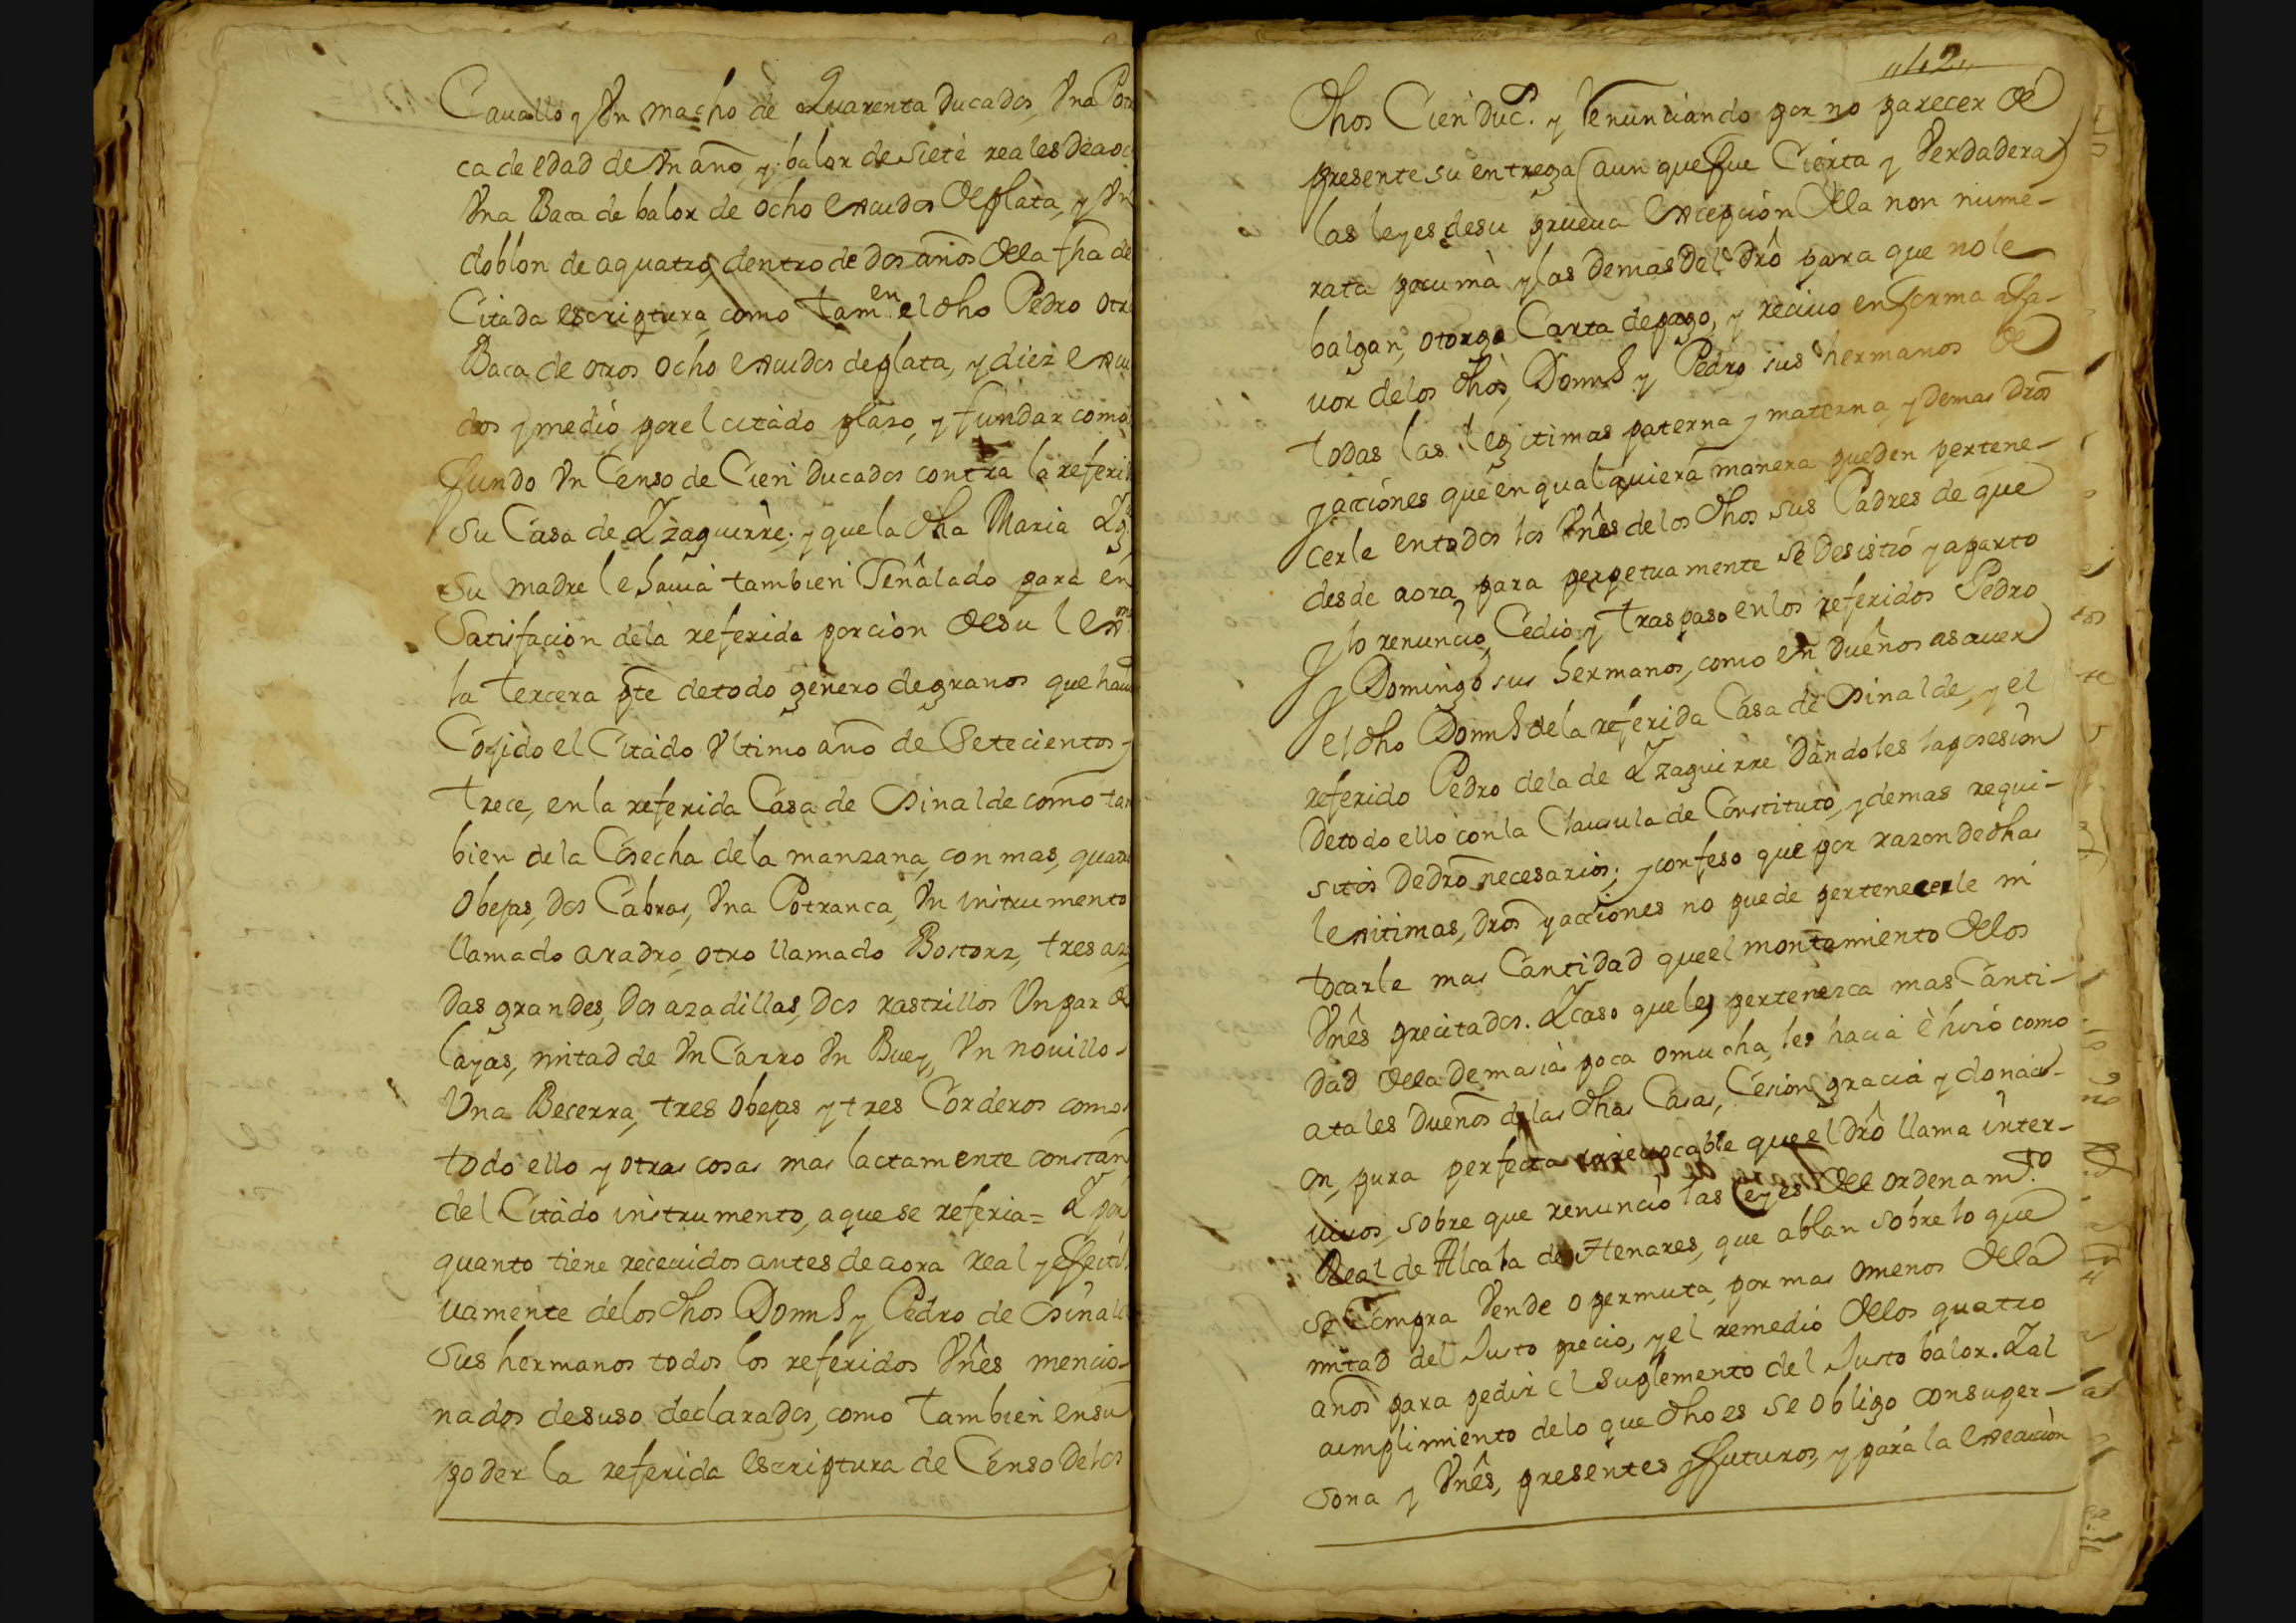 Cauallo y Vn macho de Quarenta Ducados, Vna Potr
ca de edad de Vn año y balor de siete reales de a oc
Vna Baca de balor de ocho escudos de plata, y Vn
doblon de a quatro, dentro de dos años de la fha de
Citada escriptura, como tamen el dho Pedro otr
Baca de otros ocho escudos de plata, y diez escu
dos y medio por el citado plaso, y fundar como
fundo Vn Censo de Cien Ducados contra la referid
su Casa de Yzaguirre; y que la dha Maria
su madre le hauia tambien señalado para en
satisfacion de la referida porcion de su
la tercera pte de todo genero de granos que hau
Cojido el Citado Vltimo año de Setecientos y
trece, en la referida Casa de Osinalde como tan
bien de la Cosecha de la manzana, con mas, quatro
Obejas, dos Cabras, Vna Potranca, Vn instrumento
llamado aradro, otro llamado Bostorz, tres aza
das grandes, dos azadillas, dos rastrillos Vn par de
layas, mitad de Vn Carro Vn Buey, Vn nouillo
Vna Becerra, tres obejas y tres Corderos como
todo ello y otras cosas mas lactamente constan
del Citado instrumento, a que se referia = Y por
quanto tiene receuidos antes de aora real y efecti
uamente de los dhos Domingo y Pedro de Osinalde
sus hermanos todos los referidos Vnês mencio-
nados de suso declarados, como tambien en su
poder la referida escriptura de Censo de los
42
dhos Cien Duc.s y renunciando por no parecer de
presente su entrega (aunque fue Cierta y Verdadera)
las leyes de su prueua excepcion de la non nume-
rata pecunia y las demas del drô para que no le
balgan, otorgo Carta de pago, y reciuo en forma a fa-
uor de los dhos, Domingo y Pedro sus hermanos de
todas las legitimas paterna y materna, y demas dros
y acciones que en qualquiera manera pueden pertene-
cerle en todos los Vnês de los dhos sus Padres de que
desde aora para perpetuamente se desistio y aparto
y lo renuncio, Cedio y traspaso en los referidos Pedro
y Domingo sus hermanos, como en dueños asauer
el dho Domingo de la referida Casa de Osinalde, y el
referido Pedro de la de Yzaguirre dandoles la posesion
de todo ello con la Clausula de Constituto, y demas requi-
sitos de dro necesarios; y confeso que por razon de dhas
lexitimas, dros y acciones no puede pertenecerle ni
tocarle mas Cantidad que el montamiento de los
Vnês precitados. Y caso que les pertenezca mas Canti-
dad de la demasia poca o mucha, les hacia è hizo como
a tales dueños de las dhas Casas, Cesion gracia y donaci-
on, pura perfecta irreuocable que el drô llama inter-
uiuos, sobre que renuncio las leyes del ordenam.to
Real de Alcala de Henares, que ablan sobre lo que
se Compra Vende o permuta, por mas o menos de la
mitad del Justo precio, y el remedio de los quatro
años para pedir el suplemento del Justo balor. Y al
cumplimiento de lo que dho es se obligo con su per-
sona y Vnês, presentes y futuros, y para la execucion